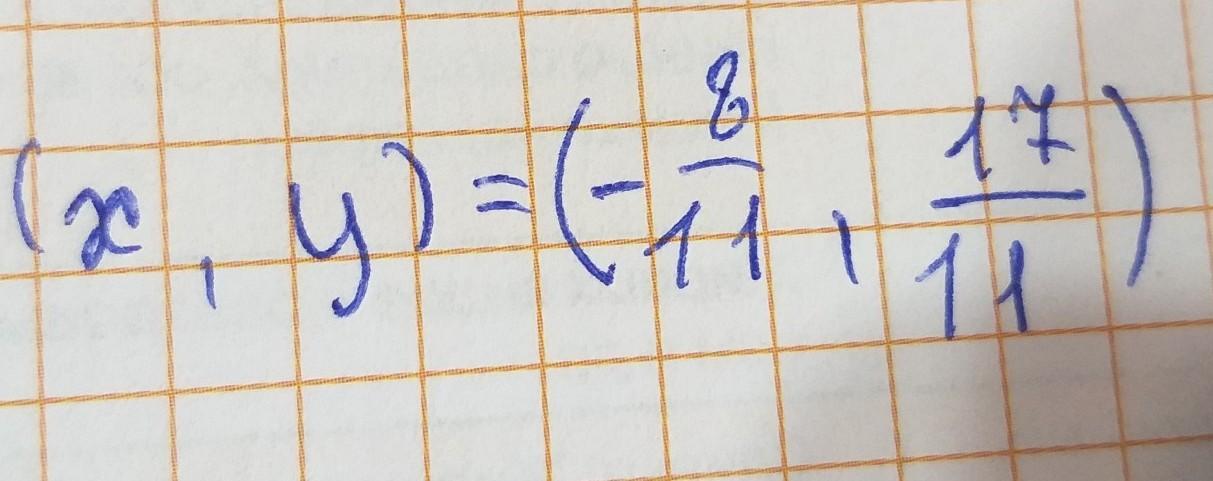 (x, y) = (-8/11, 17/11)